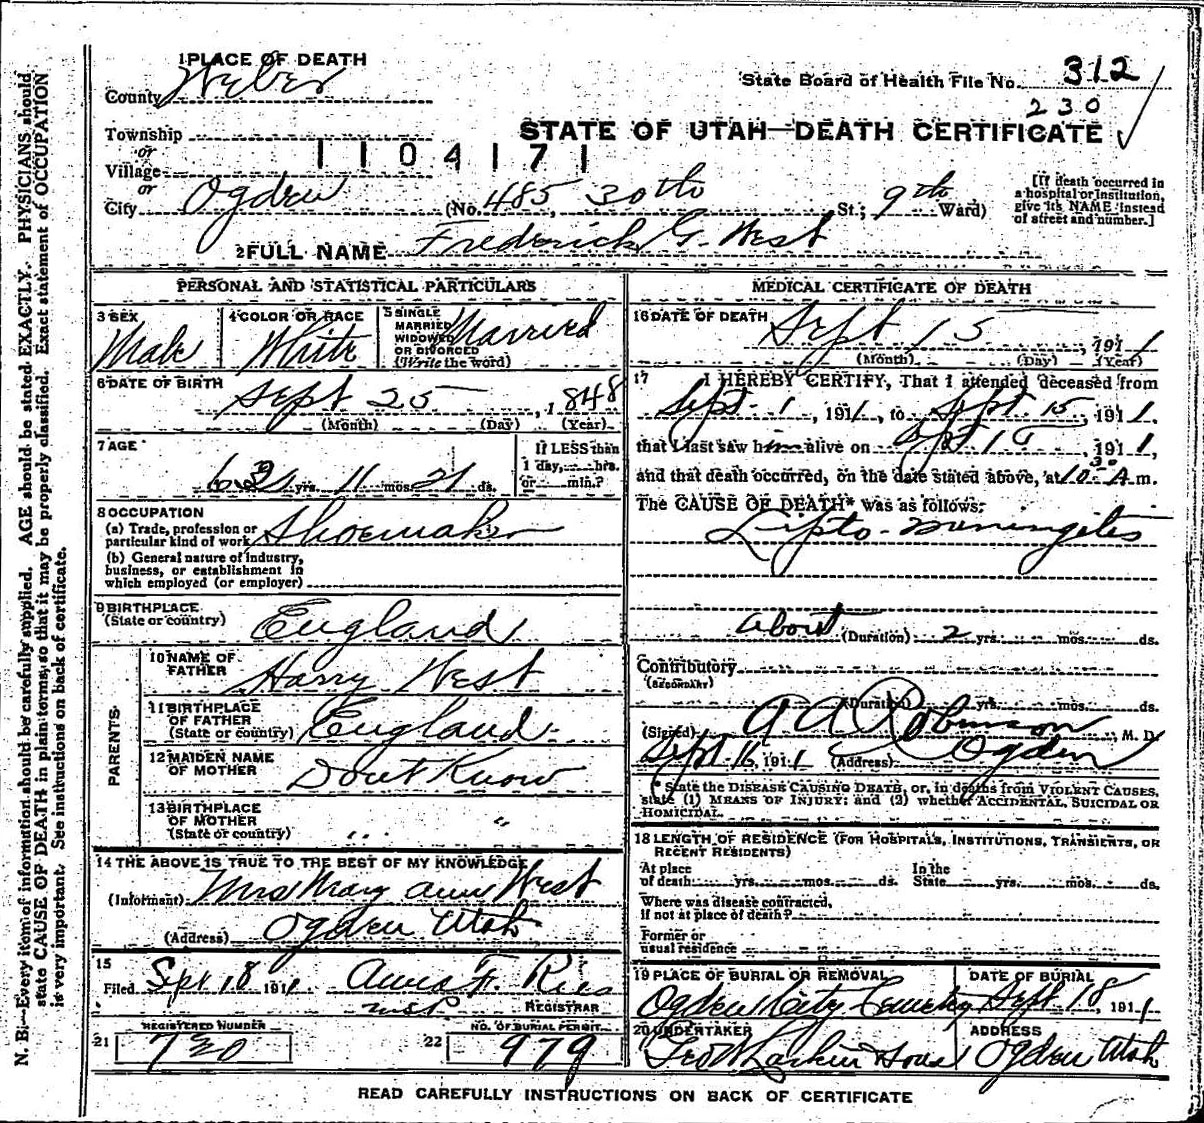 1 PLACE OF DEATH
County Weber
State Board of Health File No. 312
230
Township
or
STATE OF UTAH—DEATH CERTIFICATE
1104171
Village
or
City Ogden (No. 485, 30th St.; 9th Ward)
[If death occurred in
a hospital or institution,
give its NAME instead
of street and number.]
2 FULL NAME Frederick G. West
PERSONAL AND STATISTICAL PARTICULARS
3 SEX
Male
4 COLOR OR RACE
White
5 SINGLE
MARRIED
WIDOWED
OR DIVORCED
(Write the word)
Married
6 DATE OF BIRTH
Sept 25, 1848
(Month) (Day) (Year)
7 AGE
yrs. 11 mos. 21 ds.
If LESS than
1 day, hrs.
or min.?
8 OCCUPATION
(a) Trade, profession or
particular kind of work Shoemaker
(b) General nature of industry,
business, or establishment in
which employed (or employer)
9 BIRTHPLACE
(State or country) England
PARENTS
10 NAME OF
FATHER Harry West
11 BIRTHPLACE
OF FATHER
(State or country) England
12 MAIDEN NAME
OF MOTHER Dont Know
13 BIRTHPLACE
OF MOTHER
(State or country) " "
14 THE ABOVE IS TRUE TO THE BEST OF MY KNOWLEDGE
(Informant) Mrs Mary Ann West
(Address) Ogden Utah
15
Filed Sept 18 1911
REGISTRAR
REGISTERED NUMBER
21 730
NO. OF BURIAL PERMIT
22 979
MEDICAL CERTIFICATE OF DEATH
16 DATE OF DEATH
Sept 15, 1911
(Month) (Day) (Year)
17 I HEREBY CERTIFY, That I attended deceased from
Sept. 1, 1911, to Sept. 15, 1911.
that I last saw him alive on Sept 15, 1911,
and that death occurred, on the date stated above, at 10:30 A m.
The CAUSE OF DEATH* was as follows:
Lepto-meningitis
About (Duration) 2 yrs. mos. ds.
Contributory
(SECONDARY)
(Duration) yrs. mos. ds.
(Signed) A A Robinson, M. D.
Sept 16, 1911 (Address) Ogden
* State the DISEASE CAUSING DEATH, or, in deaths from VIOLENT CAUSES,
state (1) MEANS OF INJURY; and (2) whether ACCIDENTAL, SUICIDAL OR
HOMICIDAL.
18 LENGTH OF RESIDENCE (FOR HOSPITALS, INSTITUTIONS, TRANSIENTS, OR
RECENT RESIDENTS)
At place
of death yrs. mos. ds.
In the
State yrs. mos. ds.
Where was disease contracted,
if not at place of death?
Former or
usual residence
19 PLACE OF BURIAL OR REMOVAL
Ogden City Cemetery
DATE OF BURIAL
Sept 18, 1911
20 UNDERTAKER
Larkin & Sons
ADDRESS
Ogden Utah
READ CAREFULLY INSTRUCTIONS ON BACK OF CERTIFICATE
N. B.—Every item of information should be carefully supplied. AGE should be stated EXACTLY. PHYSICIANS should
state CAUSE OF DEATH in plain terms, so that it may be properly classified. Exact statement of OCCUPATION
is very important. See instructions on back of certificate.